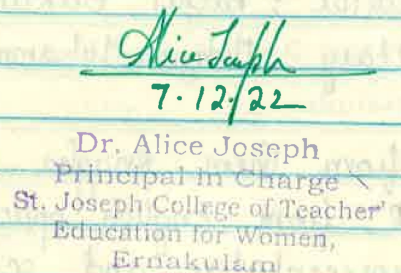 Alice Joseph
7.12.22
Dr. Alice Joseph
Principal in Charge
St. Joseph College of Teacher'
Education for Women,
Ernakulam